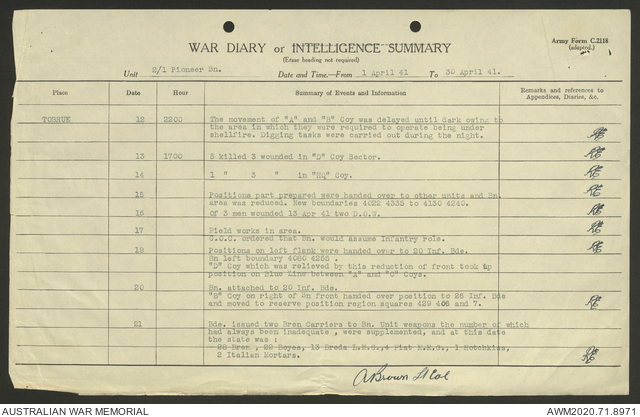 Army Form C.2118
(adapted.)
WAR DIARY or INTELLIGENCE SUMMARY
(Erase heading not required)
Unit 2/1 Pioneer Bn. Date and Time.—From 1 April 41 To 30 April 41.
Place Date Hour Summary of Events and Information Remarks and references to Appendices, Diaries, &c.
TOBRUK 12 2200 The movement of "A" and "B" Coy was delayed until dark owing to
the area in which they were required to operate being under
shellfire. Digging tasks were carried out during the night.
13 1700 5 killed 3 wounded in "D" Coy Sector.
14 1 " 3 " in "HQ" Coy.
15 Positions part prepared were handed over to other units and Bn.
area was reduced. New boundaries 4022 4335 to 4130 4240.
16 Of 3 men wounded 13 Apr 41 two D.O.W.
17 Field works in area.
G.O.C. ordered that Bn. would assume Infantry role.
18 Positions on left flank were handed over to 20 Inf. Bde.
Bn left boundary 4080 4255 .
"D" Coy which was relieved by this reduction of front took up
position on Blue Line between "A" and "C" Coys.
20 Bn. attached to 20 Inf. Bde.
"B" Coy on right of Bn front handed over position to 26 Inf. Bde
and moved to reserve position region squares 429 406 and 7.
21 Bde. issued two Bren Carriers to Bn. Unit weapons the number of which
had always been inadequate , were supplemented, and at this date
the state was :
28 Bren , 22 Boyes, 13 Breda L.M.G.,4 Fiat H.M.G., 1 Hotchkiss,
2 Italian Mortars.
A Brown Lt Col
AUSTRALIAN WAR MEMORIAL
AWM2020.71.8971